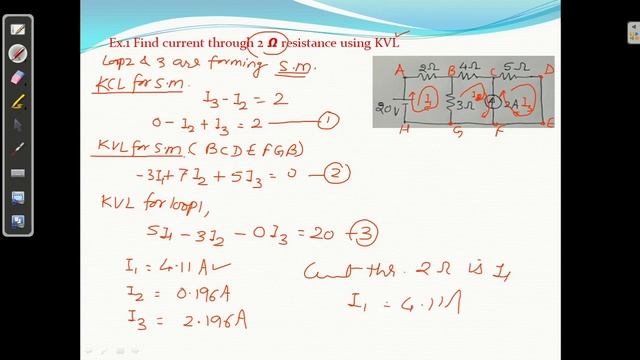 Ex.1 Find current through 2 Ω resistance using KVL
Loop2 & 3 are forming S.M.
KCL for S.M.
I3 - I2 = 2
0 - I2 + I3 = 2 — 1
KVL for S.M ( BCDEFGB)
-3I1 + 7I2 + 5I3 = 0 — 2
KVL for loop1,
5I1 - 3I2 - 0I3 = 20 — 3
I1 = 4.11A ✓
I2 = 0.196A
I3 = 2.196A
Cunt thr. 2Ω is I1
I1 = 4.11A
A 2Ω B 4Ω C 5Ω D
20V I1 3Ω I2 A 2A I3
H G F E